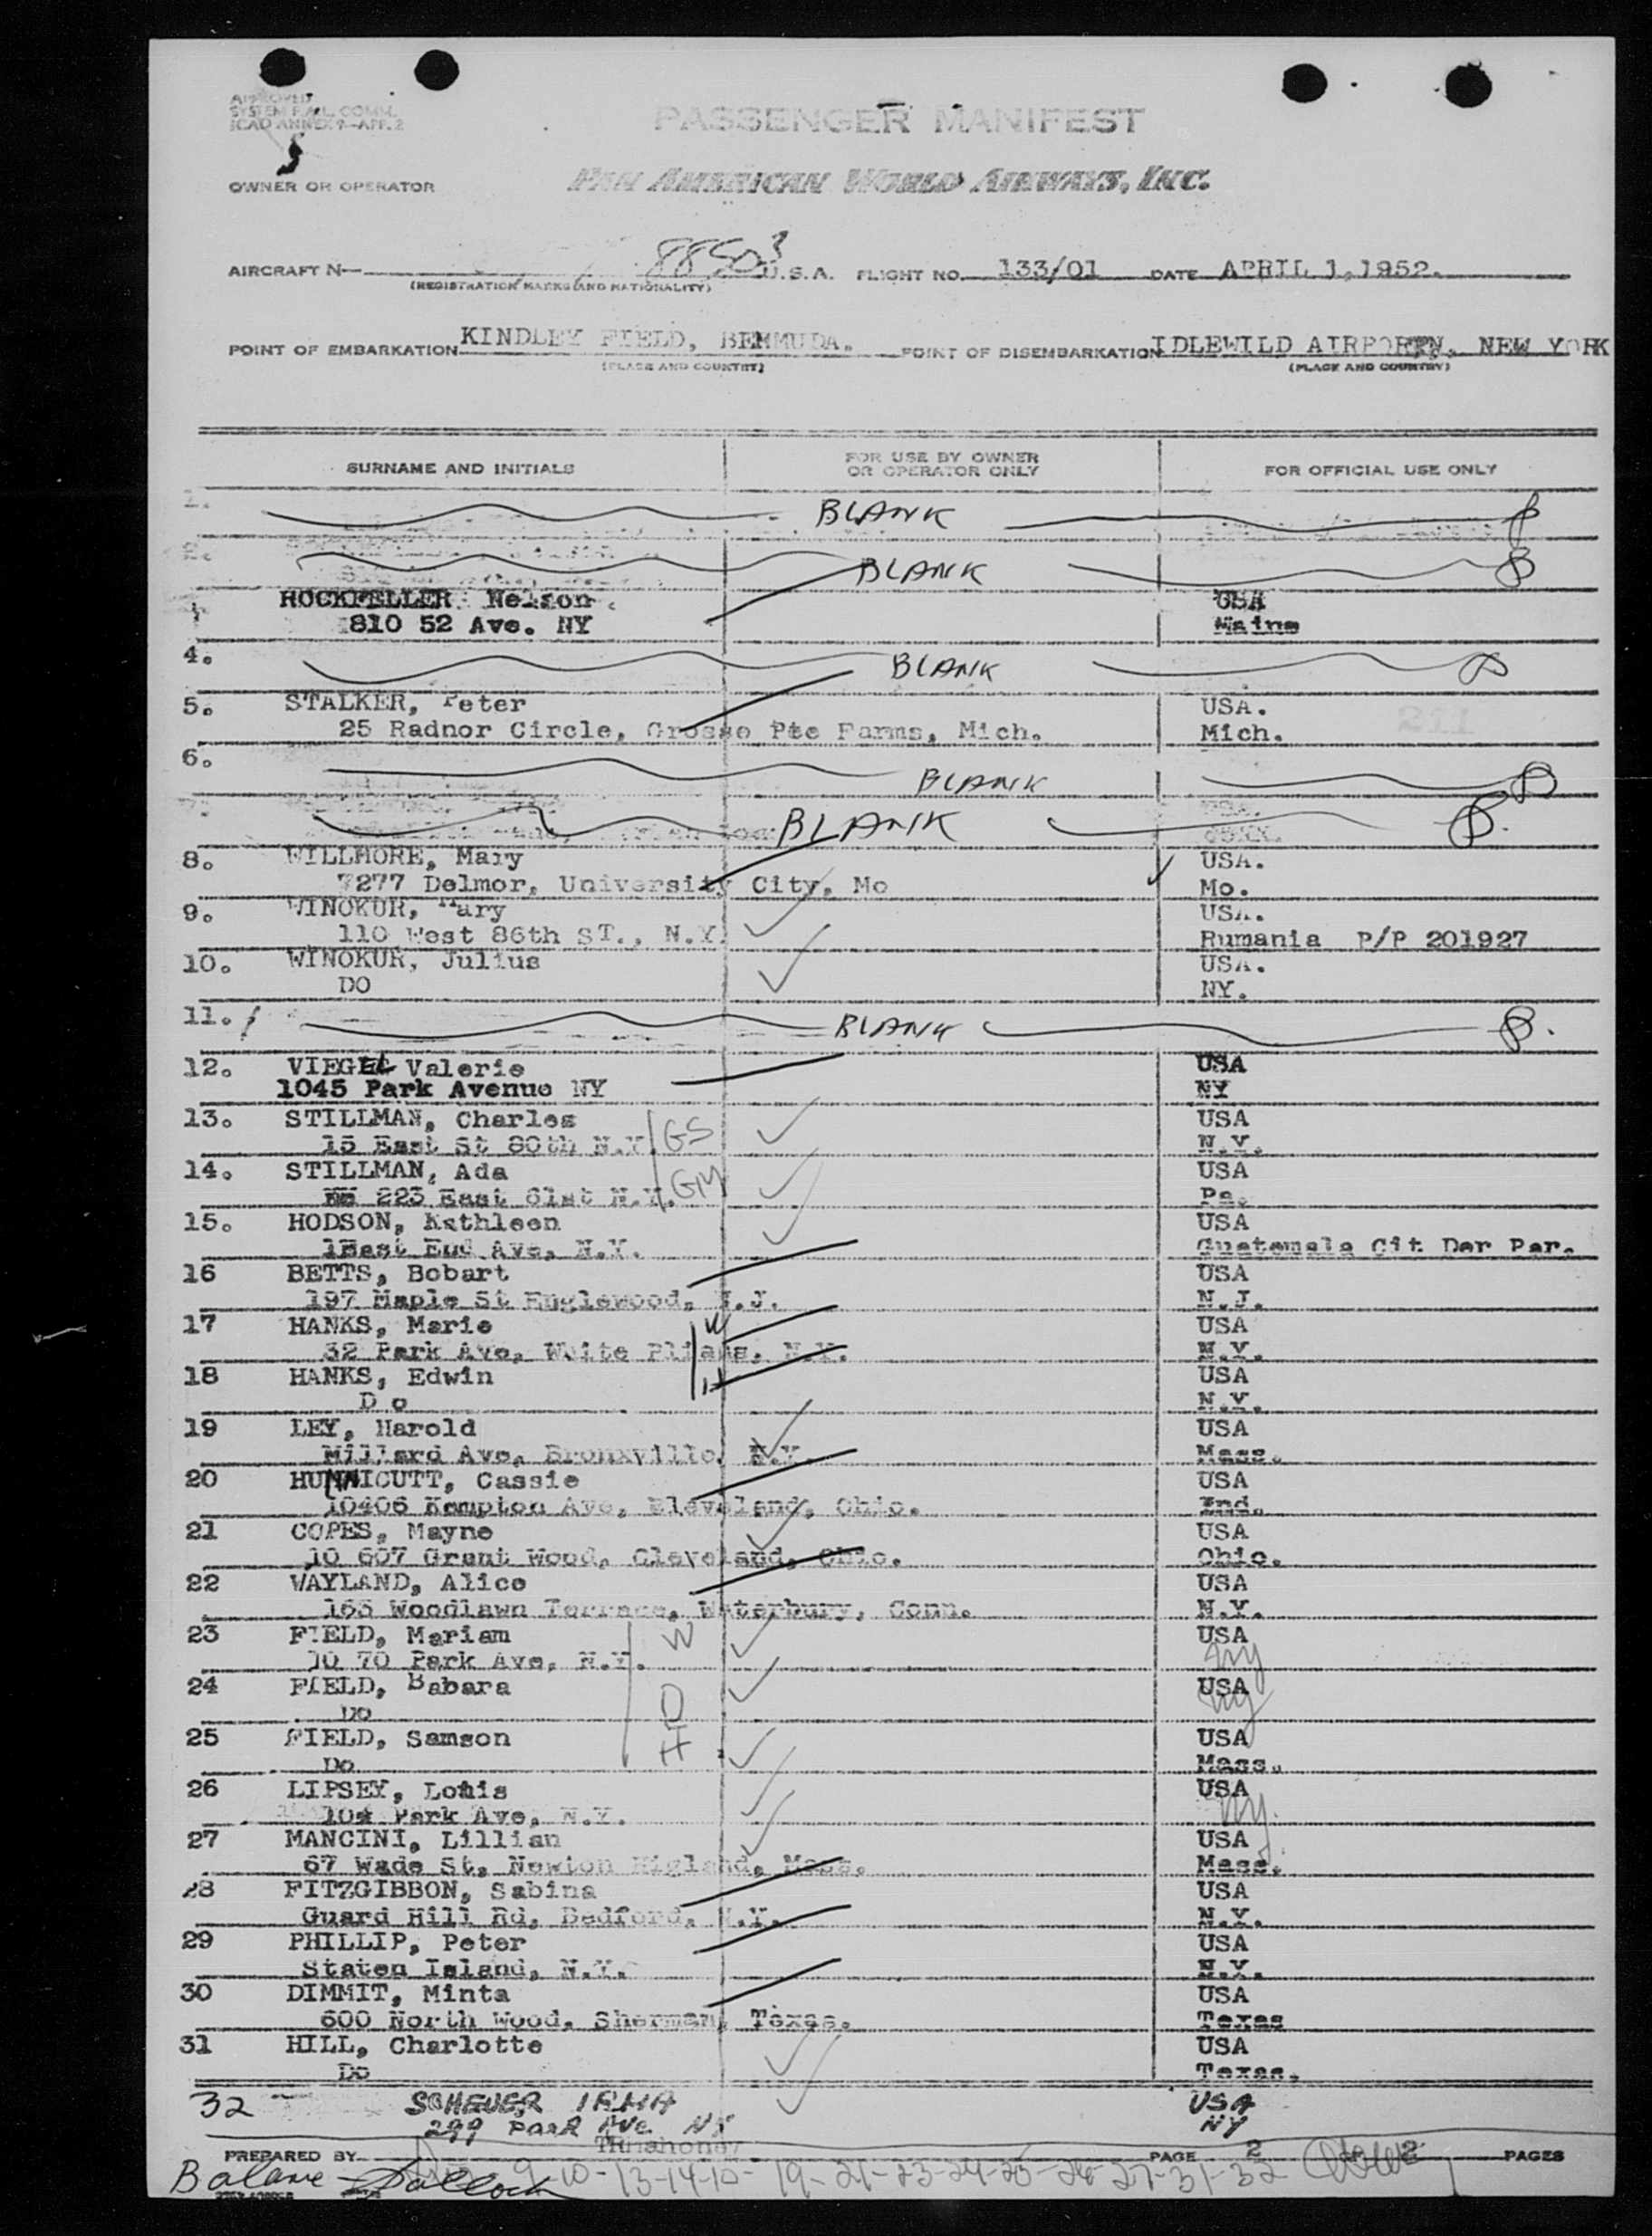 APPROVED
SYSTEM F.A.L. COMM.
ICAO ANNEX 9-APP. 2
PASSENGER MANIFEST
OWNER OR OPERATOR PAN AMERICAN WORLD AIRWAYS, INC.
AIRCRAFT N- 88503 U.S.A. FLIGHT NO. 133/01 DATE APRIL 1,1952.
(REGISTRATION MARKS AND NATIONALITY)
POINT OF EMBARKATION KINDLEY FIELD, BERMUDA. POINT OF DISEMBARKATION IDLEWILD NEW YORK
(PLACE AND COUNTRY) (PLACE AND COUNTRY)
SURNAME AND INITIALS FOR USE BY OWNER OR OPERATOR ONLY FOR OFFICIAL USE ONLY
1. BLANK
2. BLANK
HOCKFELLER Nelson USA
810 52 Ave. NY Maine
4. BLANK
5. STALKER, Peter USA.
25 Radnor Circle, Grosse Pte Farms, Mich. Mich.
211
6. BLANK
BLANK
8. WILLMORE, Mary USA.
7277 Delmor, University City, Mo Mo.
9. WINOKUR, Mary USA.
110 West 86th ST., N.Y. Rumania P/P 201927
10. WINOKUR, Julius USA.
DO NY.
11. BLANK
12. VIEGEL Valerie USA
1045 Park Avenue NY NY
13. STILLMAN, Charles GS USA
15 East St 80th N.Y. N.Y.
14. STILLMAN, Ada GM USA
223 East 61st N.Y. Pa.
15. HODSON, Kathleen USA
1East End Ave, N.Y. Guatemala Cit Der Par.
16 BETTS, Bobart USA
197 Maple St Englewood, N.J. N.J.
17 HANKS, Marie W USA
32 Park Ave, White Plians, N.Y. N.Y.
18 HANKS, Edwin H USA
D o N.Y.
19 LEY, Harold USA
Millard Ave, Bronxville, N.Y. Mass.
20 HUNNICUTT, Cassie USA
10406 Kempton Ave, Cleveland, Ohio. Ind.
21 COPES, Mayne USA
10 607 Grant Wood, Cleveland, Ohio. Ohio.
22 WAYLAND, Alice USA
165 Woodlawn Terrace, Waterbury, Conn. N.Y.
23 FIELD, Mariam W USA
10 70 Park Ave, N.Y. NY
24 FIELD, Babara D USA
Do NY
25 FIELD, Samson H USA
Do Mass.
26 LIPSEY, Louis USA
104 Park Ave, N.Y. NY.
27 MANCINI, Lillian USA
67 Wade St, Newton Higland, Mass. Mass.
28 FITZGIBBON, Sabina USA
Guard Hill Rd, Bedford, N.Y. N.Y.
29 PHILLIP, Peter USA
Staten Island, N.Y. N.Y.
30 DIMMIT, Minta USA
600 North Wood, Sherman, Texas. Texas
31 HILL, Charlotte USA
Do Texas.
32 SCHEUER IRMA USA
299 PARK AVE NY NY
PREPARED BY THmahoney PAGE 2 2 PAGES
9-10-13-14-15-19-21-23-24-25-26-27-31-32